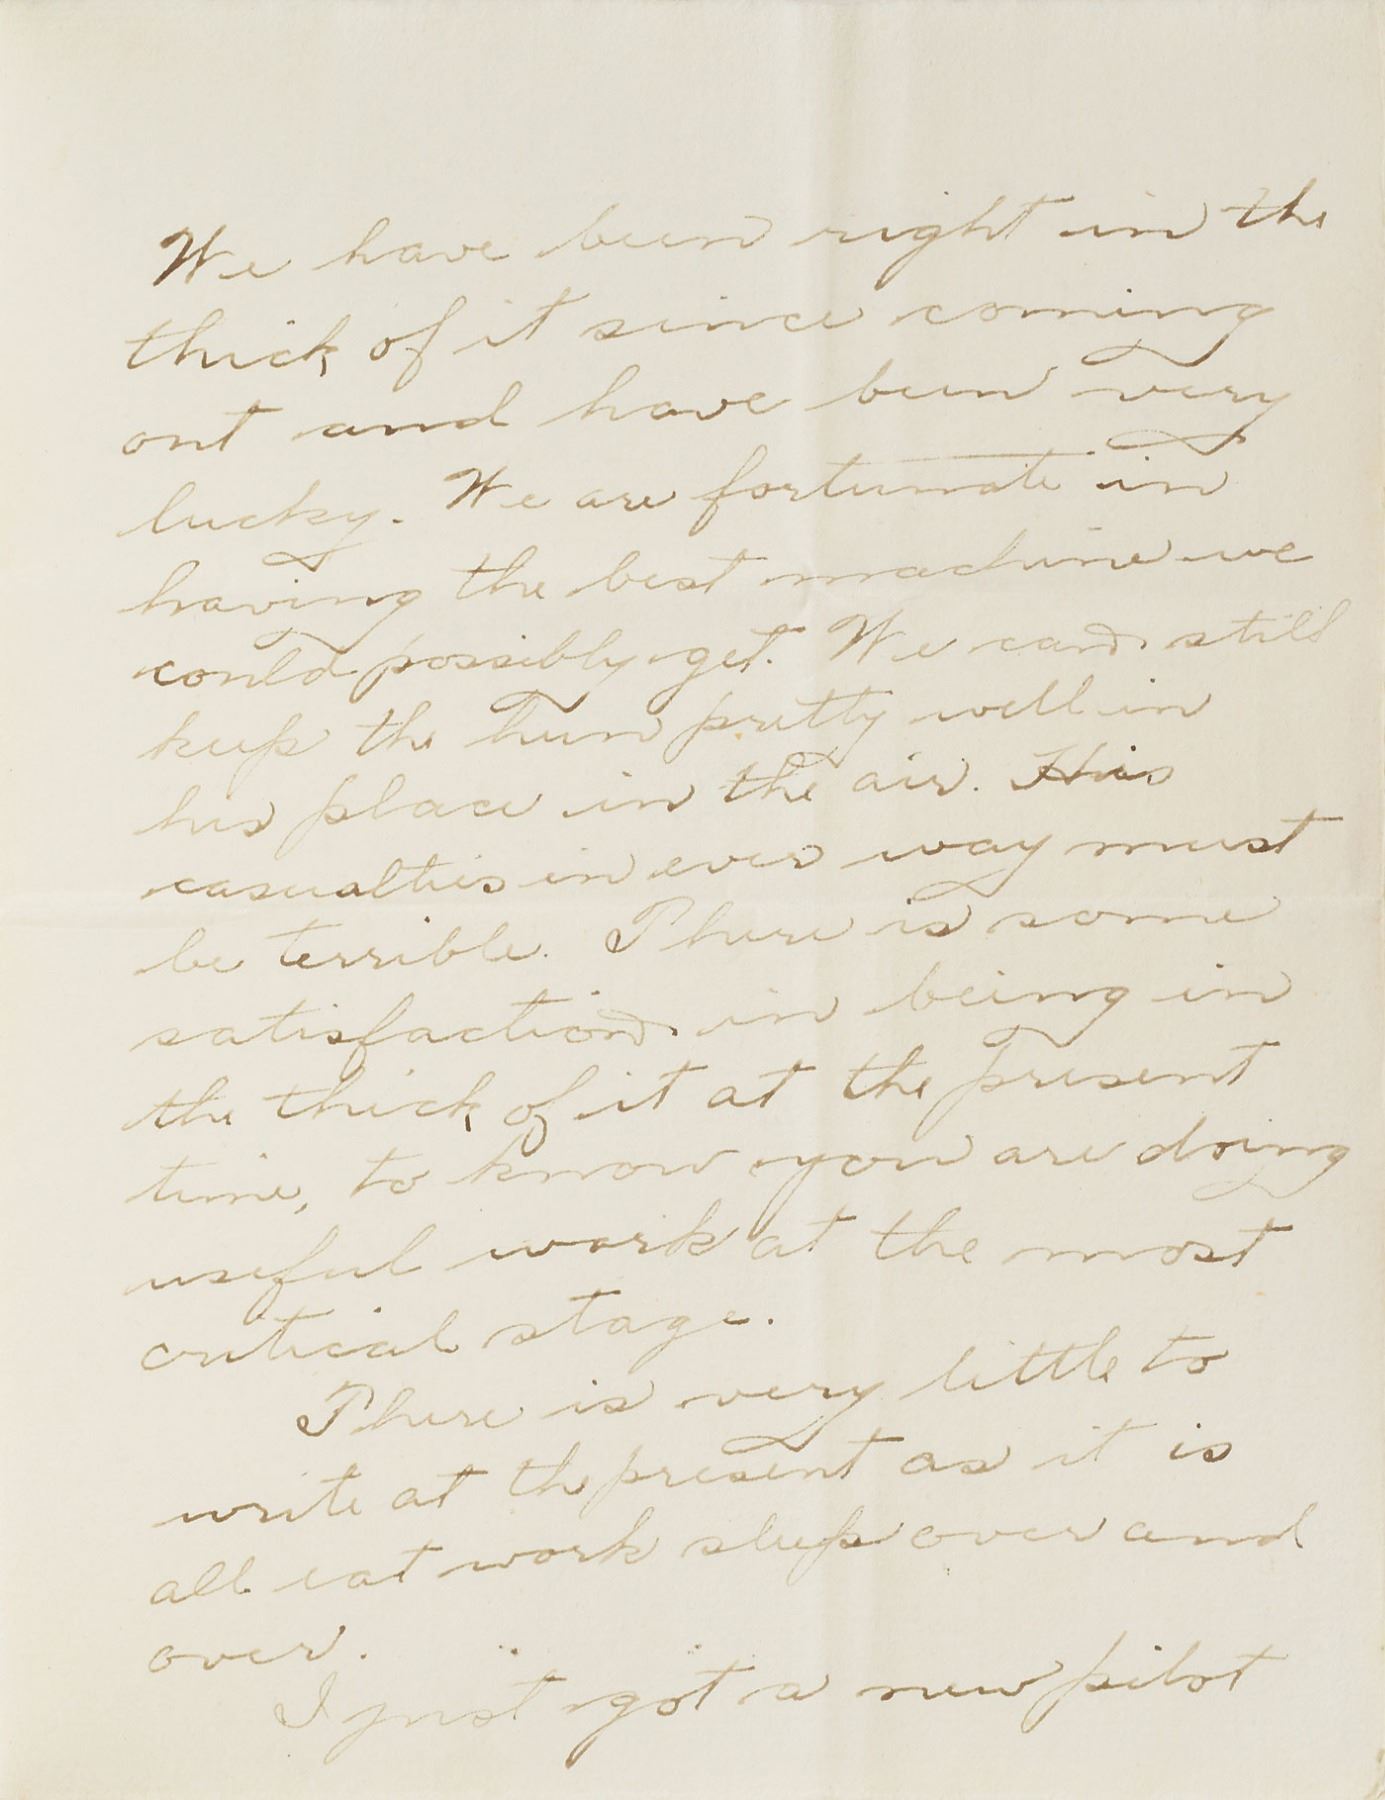 We have been right in the
thick of it since coming
out and have been very
lucky. We are fortunate in
having the best machine we
could possibly get. We can still
keep the hun pretty well in
his place in the air. His
casualties in ever way must
be terrible. There is some
satisfaction in being in
the thick of it at the present
time, to know you are doing
useful work at the most
critical stage.
There is very little to
write at the present as it is
all eat work sleep over and
over.
I just got a new pilot